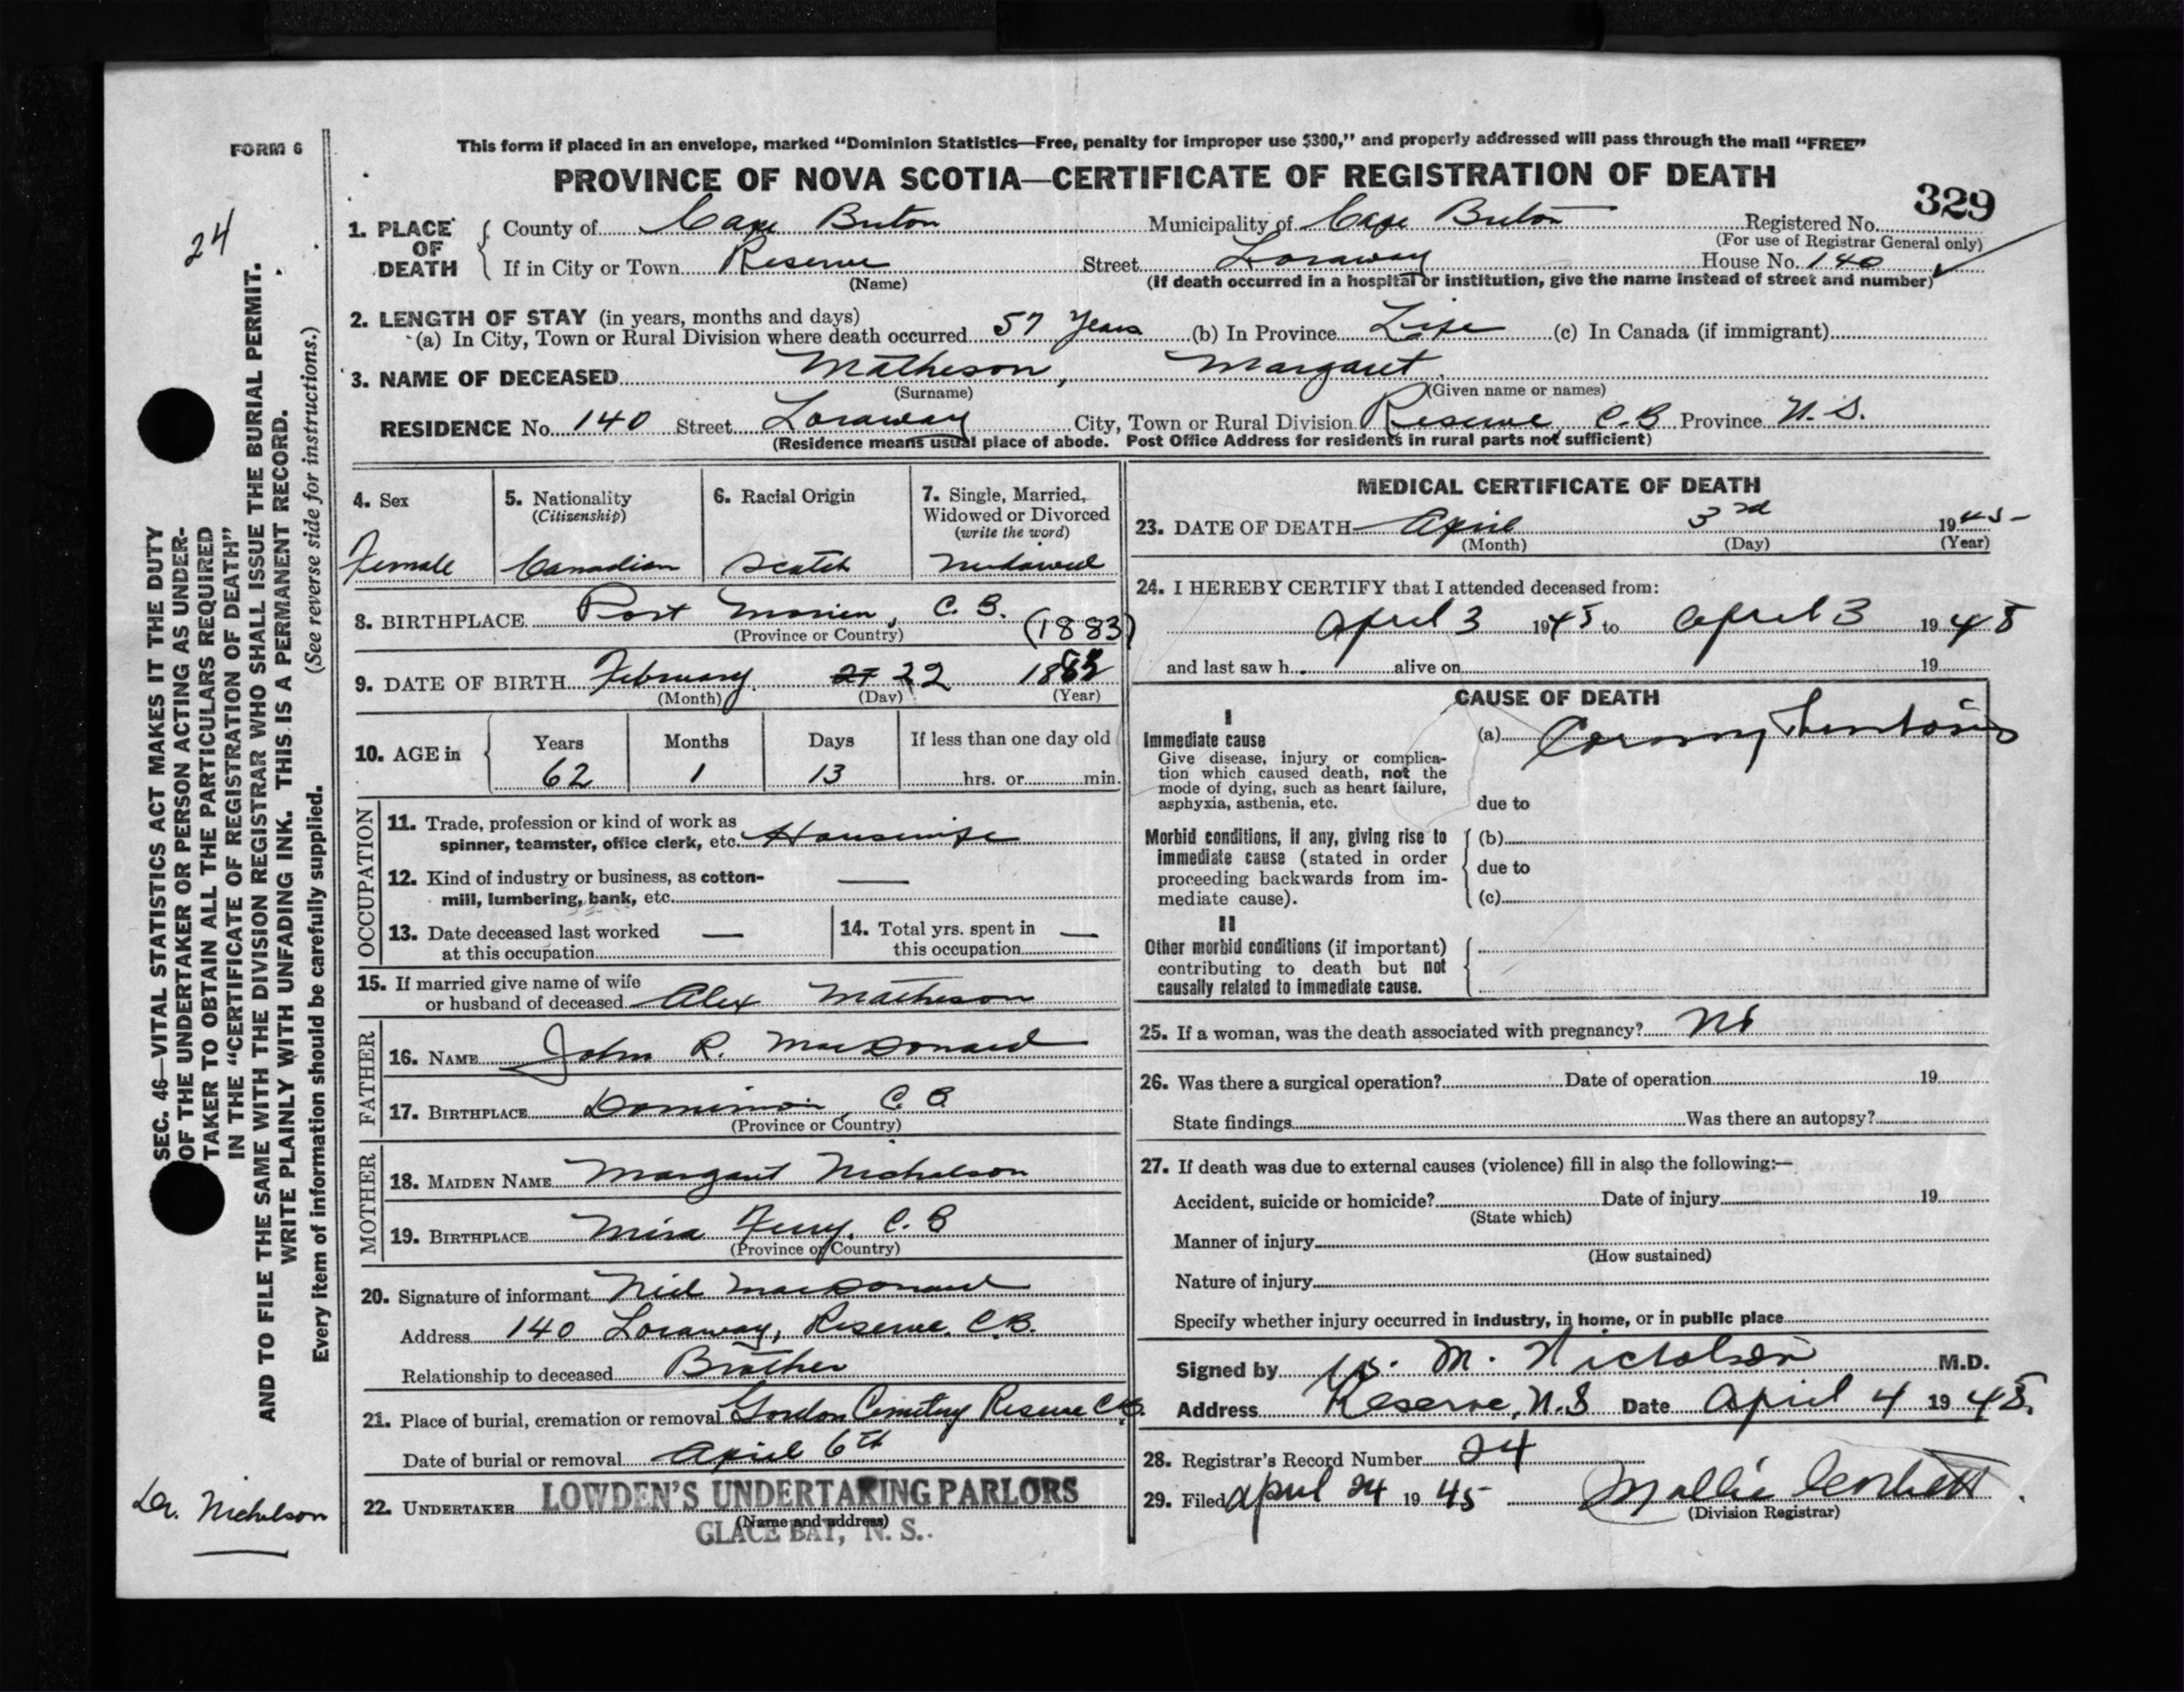 FORM 6
This form if placed in an envelope, marked “Dominion Statistics—Free, penalty for improper use $300,” and properly addressed will pass through the mail “FREE”
PROVINCE OF NOVA SCOTIA—CERTIFICATE OF REGISTRATION OF DEATH
329
24
1. PLACE OF DEATH { County of Cape Breton Municipality of Cape Breton Registered No.
(For use of Registrar General only)
If in City or Town Reserve Street Loraway House No. 140 ✓
(Name) (If death occurred in a hospital or institution, give the name instead of street and number)
2. LENGTH OF STAY (in years, months and days)
(a) In City, Town or Rural Division where death occurred 57 Years (b) In Province Life (c) In Canada (if immigrant)
3. NAME OF DECEASED Matheson, Margaret
(Surname) (Given name or names)
RESIDENCE No. 140 Street Loraway City, Town or Rural Division Reserve C.B Province N.S.
(Residence means usual place of abode. Post Office Address for residents in rural parts not sufficient)
4. Sex
Female
5. Nationality
(Citizenship)
Canadian
6. Racial Origin
Scotch
7. Single, Married, Widowed or Divorced
(write the word)
Widowed
8. BIRTHPLACE Port Morien, C.B.
(Province or Country) (1883)
9. DATE OF BIRTH February 21 22 1883
(Month) (Day) (Year)
10. AGE in { Years Months Days If less than one day old
62 1 13 hrs. or min.
OCCUPATION
11. Trade, profession or kind of work as
spinner, teamster, office clerk, etc. Housewife
12. Kind of industry or business, as cotton-
mill, lumbering, bank, etc. —
13. Date deceased last worked
at this occupation —
14. Total yrs. spent in
this occupation —
15. If married give name of wife
or husband of deceased Alex Matheson
FATHER
16. NAME John R. MacDonald
17. BIRTHPLACE Dominion, C B
(Province or Country)
MOTHER
18. MAIDEN NAME Margaret Nicholson
19. BIRTHPLACE Mira Ferry, C.B
(Province or Country)
20. Signature of informant Neil MacDonald
Address 140 Loraway, Reserve, C.B.
Relationship to deceased Brother
21. Place of burial, cremation or removal Gordon Cemetery Reserve C.B.
Date of burial or removal April 6th
22. UNDERTAKER LOWDEN'S UNDERTAKING PARLORS
(Name and address)
GLACE BAY, N. S.
MEDICAL CERTIFICATE OF DEATH
23. DATE OF DEATH April 3rd 1945
(Month) (Day) (Year)
24. I HEREBY CERTIFY that I attended deceased from:
April 3 1945 to April 3 1945
and last saw h alive on 19
CAUSE OF DEATH
I
Immediate cause
Give disease, injury or complica-
tion which caused death, not the
mode of dying, such as heart failure,
asphyxia, asthenia, etc.
(a) Coronary Thrombosis
due to
Morbid conditions, if any, giving rise to
immediate cause (stated in order
proceeding backwards from im-
mediate cause).
(b)
due to
(c)
II
Other morbid conditions (if important)
contributing to death but not
causally related to immediate cause.
25. If a woman, was the death associated with pregnancy? No
26. Was there a surgical operation? Date of operation 19
State findings Was there an autopsy?
27. If death was due to external causes (violence) fill in also the following:—
Accident, suicide or homicide? Date of injury 19
(State which)
Manner of injury
(How sustained)
Nature of injury
Specify whether injury occurred in industry, in home, or in public place
Signed by M. Nicholson M.D.
Address Reserve, N.S Date April 4 1945.
28. Registrar's Record Number 24
29. Filed April 24 1945 Mollie Corbett
(Division Registrar)
SEC. 46—VITAL STATISTICS ACT MAKES IT THE DUTY
OF THE UNDERTAKER OR PERSON ACTING AS UNDER-
TAKER TO OBTAIN ALL THE PARTICULARS REQUIRED
IN THE “CERTIFICATE OF REGISTRATION OF DEATH”
AND TO FILE THE SAME WITH THE DIVISION REGISTRAR WHO SHALL ISSUE THE BURIAL PERMIT.
WRITE PLAINLY WITH UNFADING INK. THIS IS A PERMANENT RECORD.
Every item of information should be carefully supplied. (See reverse side for instructions.)
Dr. Nicholson